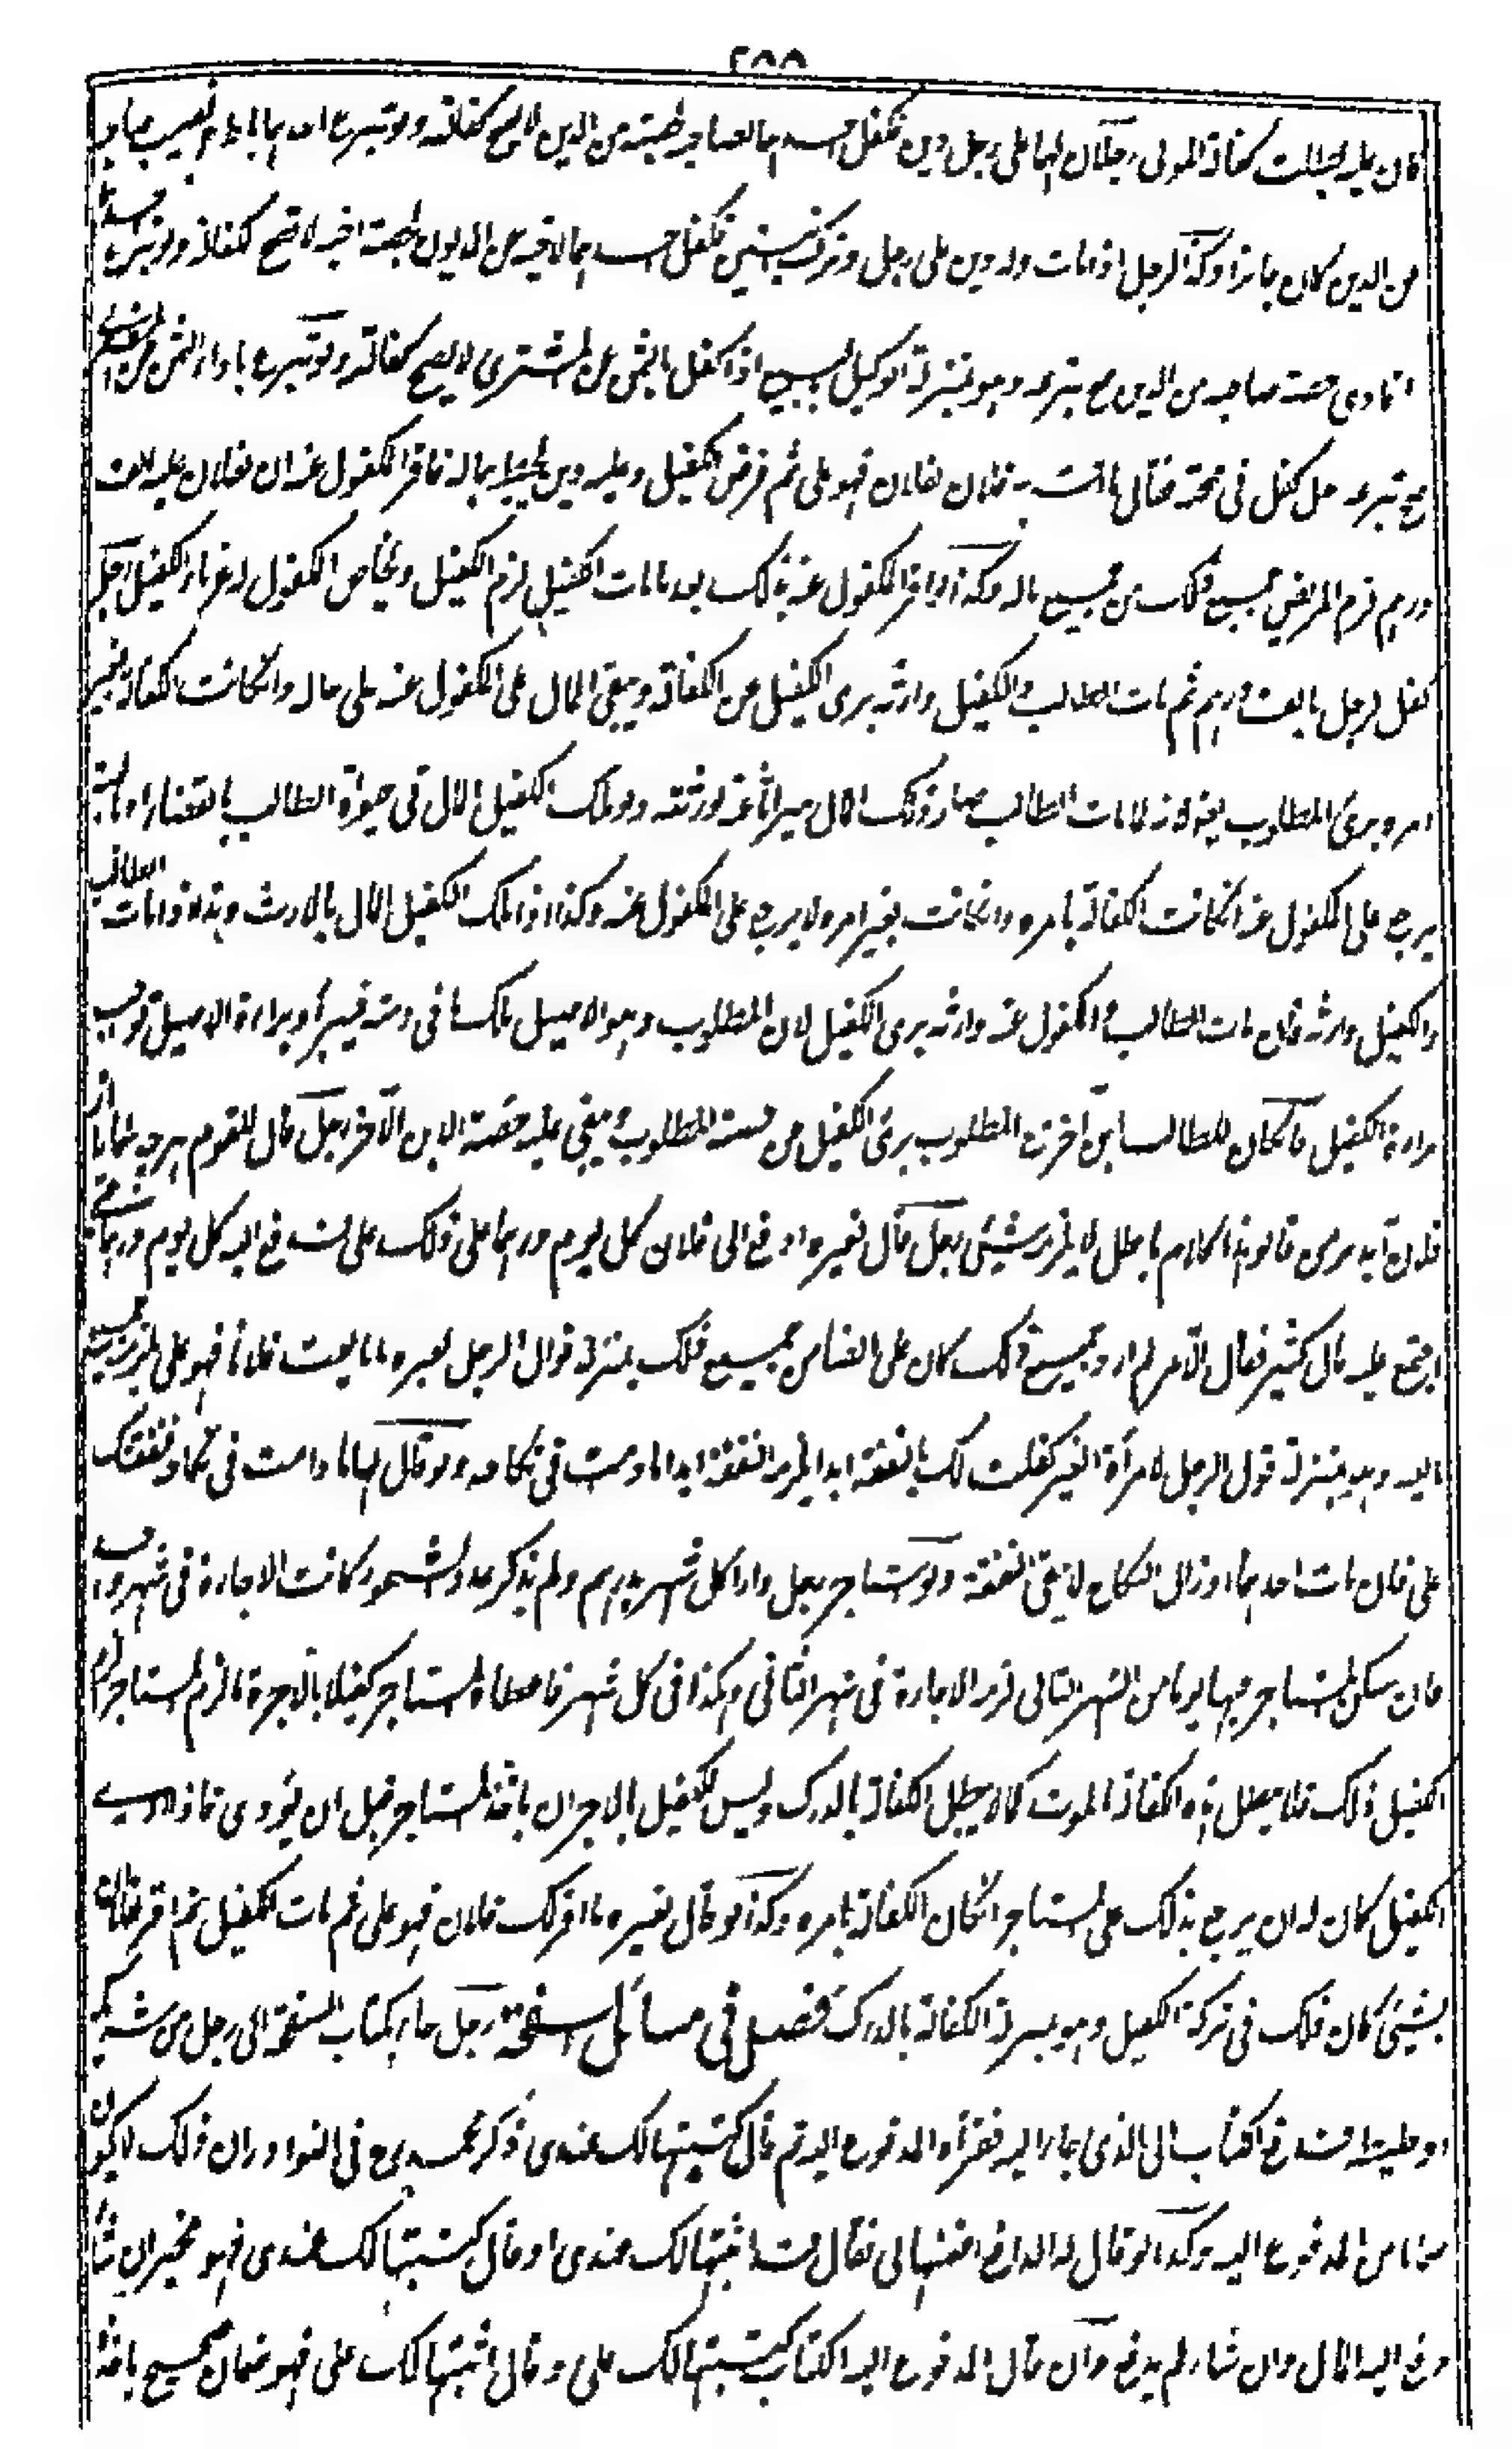 ٢٥٥
كان عليه بطلت كفالة المولى رجلان لهما على رجل دين فكفل احدهما لصاحبه بحصته من الدين لا تصح كفالته ولو تبرع احدهما باداء نصيب صاحبه
من الدين كان جائزا وكذا الرجل اذا مات وله دين على رجل وترك ابنين فكفل احدهما لاخيه عن المديون بحصة اخيه لا تصح كفالته ولو تبرع احدهما
فادى حصة صاحبه من الدين صح تبرعه وهو بمنزلة الوكيل بالبيع اذا كفل بالثمن عن المشترى لا يصح كفالته ولو تبرع باداء الثمن عن المشترى
صح تبرعه رجل كفل فى صحته فقال ما اقر به فلان لفلان فهو على ثم مرض الكفيل وعليه دين يحيط بماله فاقر المكفول عنه ان لفلان عليه الف
درهم لزم المريض جميع ذلك من جميع ماله وكذا لو اقر المكفول عنه بذلك بعد ما مات الكفيل لزم الكفيل ويحاص المكفول له غرماء الكفيل رجل
كفل لرجل بالف درهم ثم مات الطالب والكفيل وارثه برى الكفيل من الكفالة ويبقى المال على المكفول عنه على حاله وان كانت الكفالة بغير
امره برئ المطلوب ايضا لانه لما مات الطالب صار ذلك المال ميراثا عنه لورثته ولو ملك الكفيل المال فى حيوة الطالب بالقضاء او بالهبة
يرجع على المكفول عنه ان كانت الكفالة بامره وان كانت بغير امره لا يرجع على المكفول عنه وكذا اذا ملك الكفيل المال بالارث وهذا اذا مات الطالب
والكفيل وارثه فان مات الطالب والمكفول عنه وارثه برى الكفيل لان المطلوب وهو الاصيل ملك ما فى ذمته فيبرأ وبراءة الاصيل توجب
براءة الكفيل فان كان للطالب ابن آخر مع المطلوب برئ الكفيل من حصة المطلوب ويبقى عليه حصة الابن الآخر رجل قال للقوم هرچه شما را از
فلان آيد بر من قالوا هذا الكلام باطل لا يلزمه شيئ رجل قال لغيره ادفع الى فلان كل يوم درهما على ذلك على فدفع اليه كل يوم درهما حتى
اجتمع عليه مال كثير فقال الآمر لم ارد جميع ذلك كان على الضامن جميع ذلك بمنزلة قول الرجل لغيره ما بايعت فلانا فهو على يلزمه جميع
ما بايعه وهو بمنزلة قول الرجل لامرأة الغير كفلت لك بالنفقة ابدا يلزمه النفقة ابدا ما دمت فى نكاحه ولو قال لها ما دامت فى نكاحه فنفقتك
على فان مات احدهما او زال النكاح لا تبقى النفقة ولو استاجر رجل دارا كل شهر بدرهم ولم يذكر عدد الشهور كانت الاجارة فى شهر واحد
فان سكن المستاجر فيها يوما من الشهر الثانى لزمه الاجارة فى الشهر الثانى وهكذا فى كل شهر فاعطاه المستاجر كفيلا بالاجرة ما لزم المستاجر لزم
الكفيل ذلك فلا تبطل هذه الكفالة بالموت كما لا تبطل الكفالة بالدرك وليس للكفيل بالاجر ان ياخذ المستاجر قبل ان يؤدى فاذا ادى
الكفيل كان له ان يرجع بذلك على المستاجر ان كان الكفالة بامره وكذا لو قال لغيره ما اقر لك فلان فهو على ثم مات الكفيل ثم اقر فلان
بشيئ كان ذلك فى تركة الكفيل وهو بمنزلة الكفالة بالدرك فصل فى مسائل السفتجة رجل جاء بكتاب السفتجة الى رجل من شريكه
او خليطه فدفع الكتاب الى الذى جاء اليه فقرأه المدفوع اليه ثم قال كتبتها لك عندى ذكر محمد رح فى النوادر ان ذلك لا يكون
ضمانا من المدفوع اليه وكذا لو قال له الدافع اضمنها لى فقال قد اثبتها لك عندى او قال كتبتها لك عندى فهو مخير ان شاء
دفع اليه المال وان شاء لم يدفع وان قال المدفوع اليه الكتاب كتبتها لك على وقال اثبتها لك على فهو ضمان صحيح ياخذ